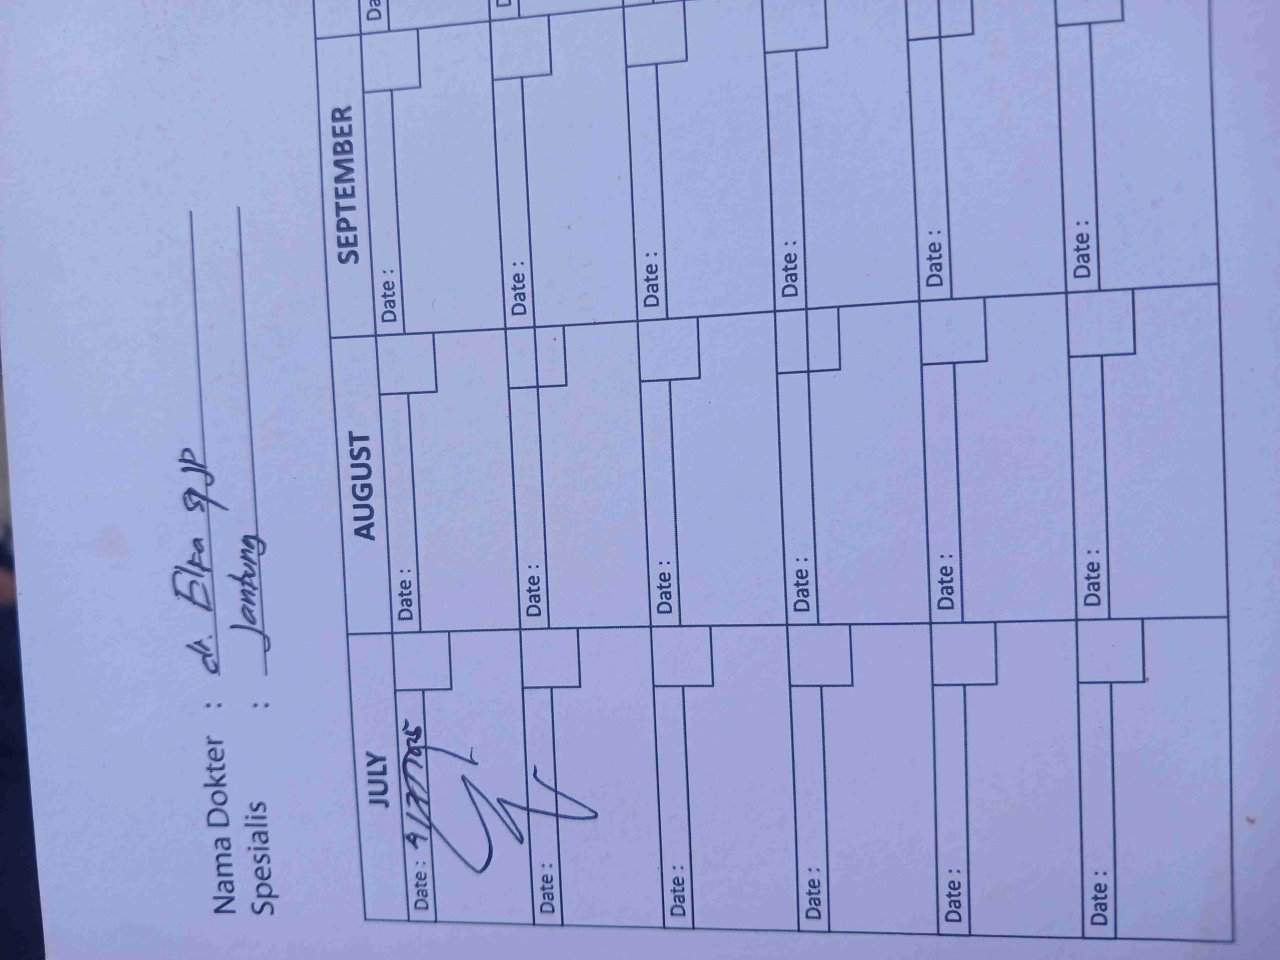 Nama Dokter : dr. Elka SpJP
Spesialis : Jantung
JULY AUGUST SEPTEMBER
Date : 9/7/2025 Date : Date : Da
Date : Date : Date : D
Date : Date : Date :
Date : Date : Date :
Date : Date : Date :
Date : Date : Date :